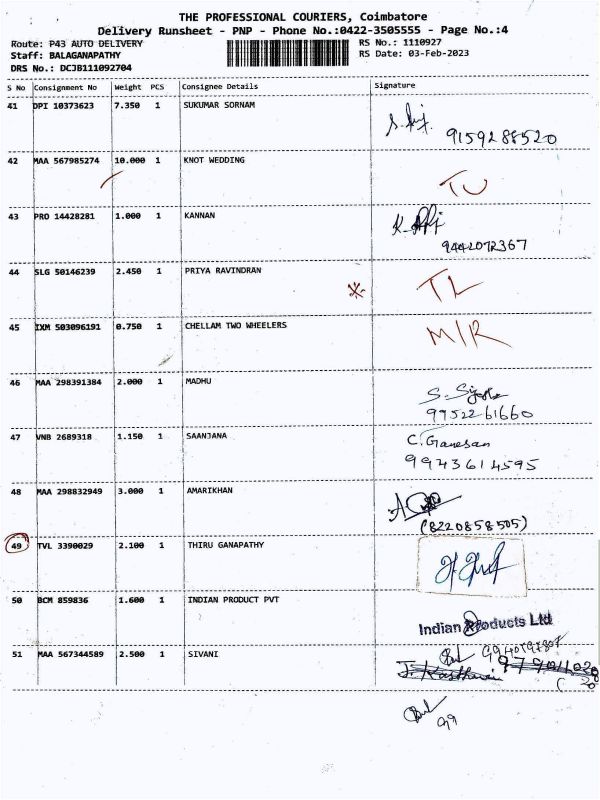 THE PROFESSIONAL COURIERS, Coimbatore
Delivery Runsheet - PNP - Phone No.:0422-3505555 - Page No.:4
Route: P43 AUTO DELIVERY
RS No.: 1110927
Staff: BALAGANAPATHY
RS Date: 03-Feb-2023
DRS No.: DCJB111092704
S No Consignment No Weight PCS Consignee Details Signature
41 DPI 10373623 7.350 1 SUKUMAR SORNAM
9159288520
42 MAA 567985274 10.000 1 KNOT WEDDING
TU
43 PRO 14428281 1.000 1 KANNAN
9442072367
44 SLG 50146239 2.450 1 PRIYA RAVINDRAN
TL
45 IXM 503096191 0.750 1 CHELLAM TWO WHEELERS
M/R
46 MAA 298391384 2.000 1 MADHU
9952261660
47 VNB 2689318 1.150 1 SAANJANA
C. Ganesan
9943614595
48 MAA 298832949 3.000 1 AMARIKHAN
(8220858505)
49 TVL 3390029 2.100 1 THIRU GANAPATHY
50 BCM 859836 1.600 1 INDIAN PRODUCT PVT
Indian Products Ltd
51 MAA 567344589 2.500 1 SIVANI